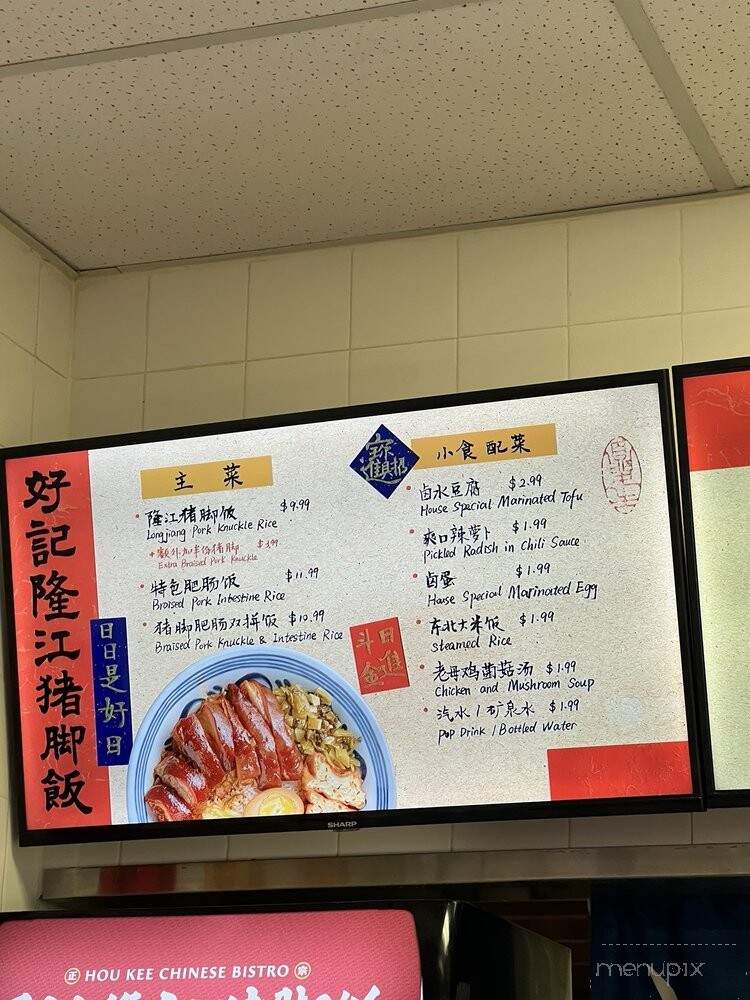 好記隆江猪脚飯
日日是好日
主菜
隆江猪脚饭 $9.99
Longjiang Pork Knuckle Rice
+额外加半份猪脚 $3.99
Extra Braised Pork Knuckle
特色肥肠饭 $11.99
Braised Pork Intestine Rice
猪脚肥肠双拼饭 $10.99
Braised Pork Knuckle & Intestine Rice
招財進寶
小食配菜
卤水豆腐 $2.99
House Special Marinated Tofu
爽口辣萝卜 $1.99
Pickled Radish in Chili Sauce
卤蛋 $1.99
House Special Marinated Egg
东北大米饭 $1.99
Steamed Rice
老母鸡菌菇汤 $1.99
Chicken and Mushroom Soup
汽水 / 矿泉水 $1.99
Pop Drink / Bottled Water
日進
斗金
SHARP
正 HOU KEE CHINESE BISTRO 宗
menupix